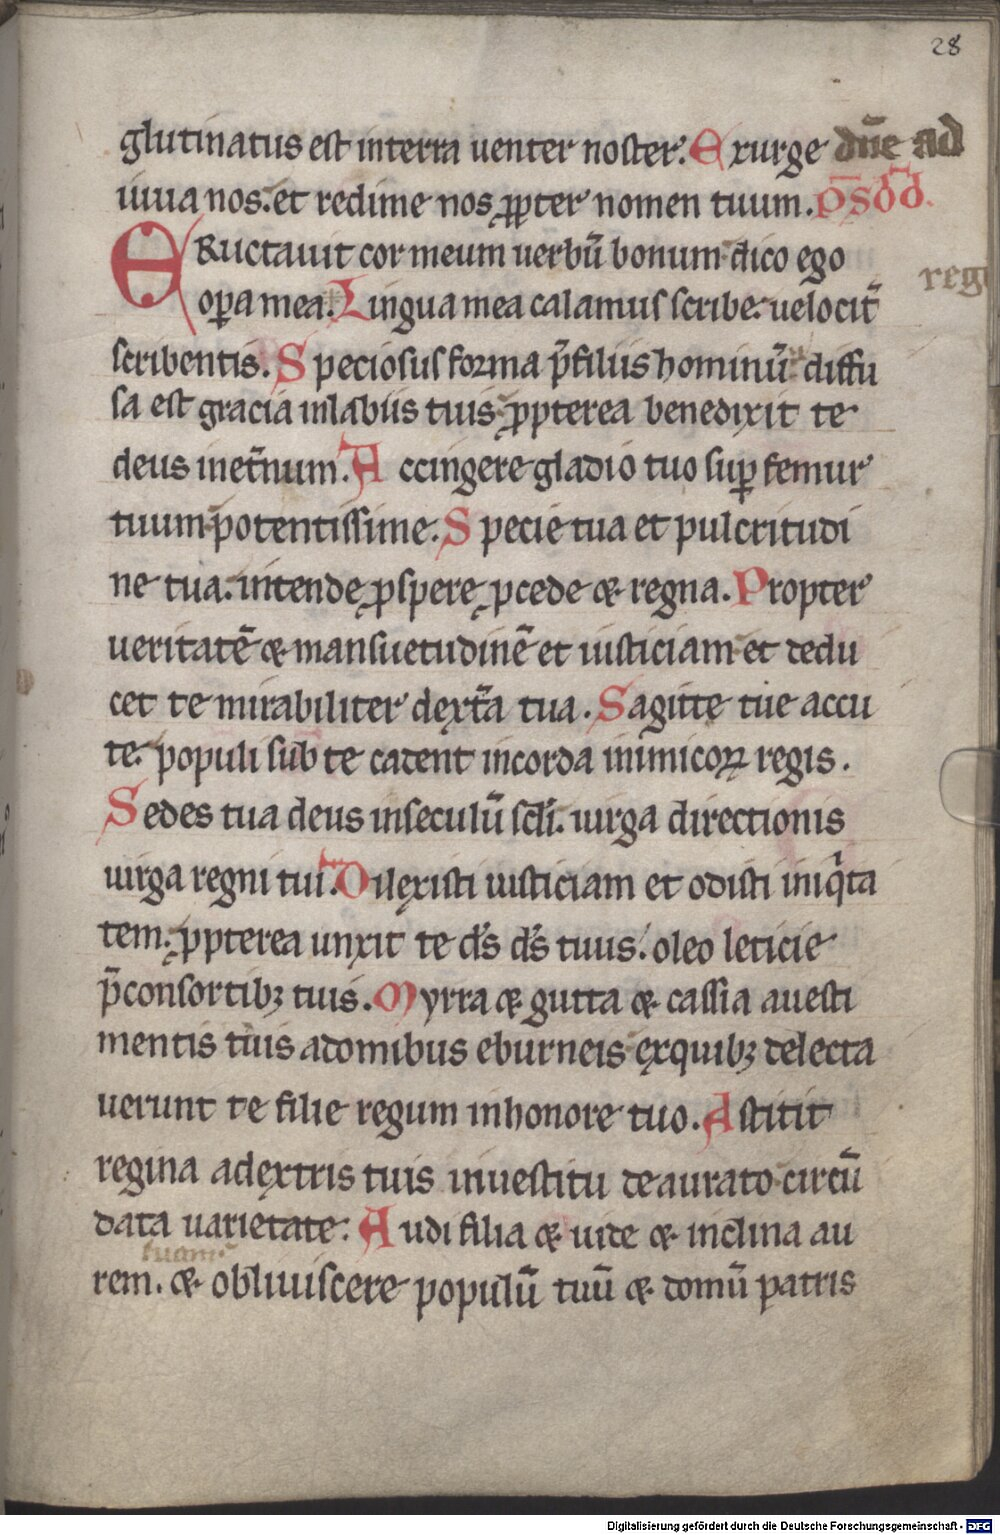 28
glutinatus est interra uenter noster. Exurge dn̄e ad
iuua nos. et redime nos ꝓpter nomen tuum. P̄S DD.
ERuctauit cor meum uerbū bonum dico ego
regi
oꝑa mea. Lingua mea calamus scribe. uelocit̄
scribentis. Speciosus forma p̄filiis hominū diffu
sa est gracia inlabiis tuis ꝓpterea benedixit te
deus inet̄num. Accingere gladio tuo suꝑ femur
tuum potentissime. Specie tua et pulcritudi
ne tua. intende ꝓspere ꝓcede & regna. Propter
ueritatē & mansuetudinē et iusticiam et dedu
cet te mirabiliter dext̄a tua. Sagitte tue accu
te. populi sub te cadent incorda inimicoꝝ regis.
Sedes tua deus inseculū scl̄i. uirga directionis
uirga regni tui. Dilexisti iusticiam et odisti iniq̄ta
tem. ꝓpterea unxit te ds̄ ds̄ tuus. oleo leticie
p̄consortibꝫ tuis. Myrra & gutta & cassia auesti
mentis tuis adomibus eburneis exquibꝫ delecta
uerunt te filie regum inhonore tuo. Astitit
regina adextris tuis inuestitu deaurato circū
data uarietate. Audi filia & uide & inclina au
tuam
rem. & obliuiscere populū tuū & domū patris
Digitalisierung gefördert durch die Deutsche Forschungsgemeinschaft - DFG